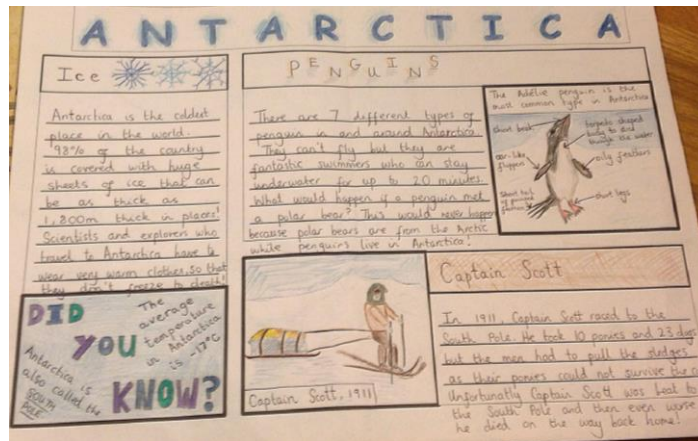 ANTARCTICA
Ice
Antarctica is the coldest
place in the world.
98% of the country
is covered with huge
sheets of ice that can
be as thick as
1,800m thick in places!
Scientists and explorers who
travel to Antarctica have to
wear very warm clothes. So that
they don't freeze to death!
DID
YOU
KNOW?
The
average
temperature
in Antarctica
is -17°C
Antarctica is
also called the
SOUTH
POLE
PENGUINS
There are 7 different types of
penguin in and around Antarctica.
They can't fly but they are
fantastic swimmers who can stay
underwater for up to 20 minutes.
What would happen if a penguin met
a polar bear? This would never happen
because polar bears are from the Arctic
while penguins live in Antarctica!
The Adélie penguin is the
most common type in Antarctica
short beak
torpedo shaped
body to
through the water
oar-like
flippers
oily feathers
short tail
of pointed
feathers
short legs
Captain Scott, 1911
Captain Scott
In 1911, Captain Scott raced to the
South Pole. He took 10 ponies and 23 dogs
but the men had to pull the sledges
as their ponies could not survive the
Unfortunatly Captain Scott was beat to
the South Pole and then even worse
he died on the way back home!